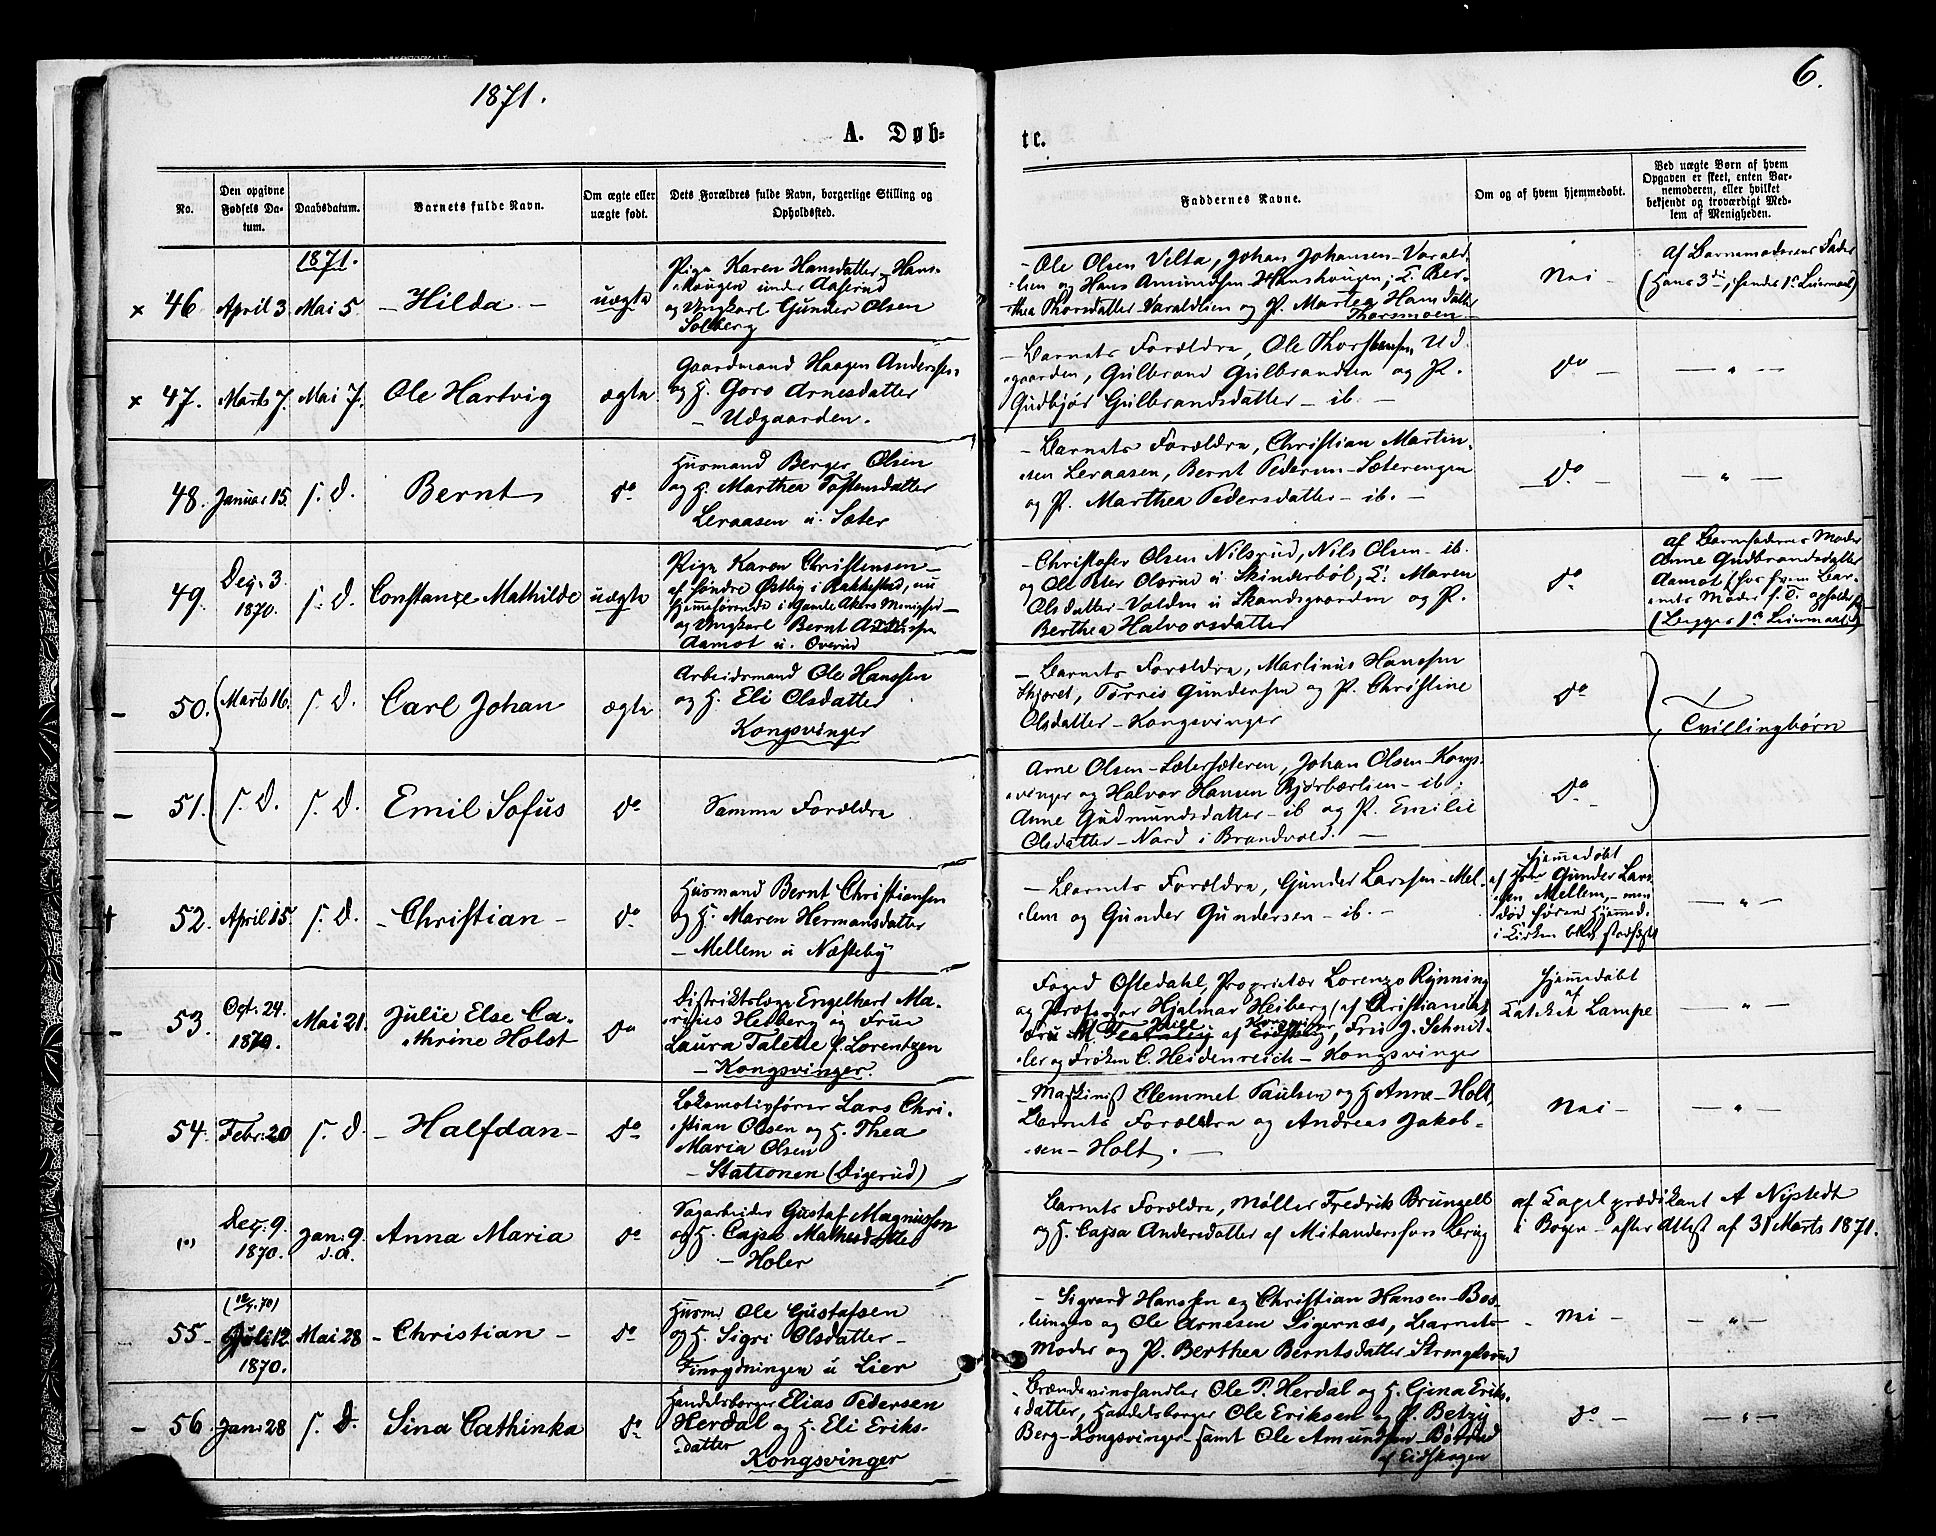 1871.
6.
A. Døb-
te.
No.
Den opgivne
Fødsels Da-
tum.
Daabsdatum.
Barnets fulde Navn.
Om ægte eller
uægte født.
Dets Forældres fulde Navn, borgerlige Stilling og
Opholdssted.
Faddernes Navne.
Om og af hvem hjemmedøbt.
Ved uægte Børn af hvem
Opgaven er skeet, enten Bar-
nemoderen, eller hvilket
bekjendt og troværdigt Med-
lem af Menigheden.
1871.
x 46
April 3
Mai 5
- Hilda -
uægte
Pige Karen Hansdatter - Hans-
haugen under Aaserud
og Ungkarl Gunder Olsen
Solberg
- Ole Olsen Velta, Johan Johansen - Varald-
lien og Hans Amundsen - Hanshaugen; K. Ber-
thea Thorsdatter - Varaldlien og P. Marthea Hansdatter
Thorsmoen -
Nei -
af Barnemoderens Fader
(Hans 3die, hendes 1ste Leiermaal)
x 47.
Marts 7.
Mai 7.
Ole Hartvig
ægte
Gaardmand Haagen Anderssen
og H. Goro Arnesdatter
- Udgaarden.
- Barnets Forældre, Ole Thorstensen Ud-
gaarden, Gulbrand Gulbrandsen og P.
Gudbjør Gulbrandsdatter - ib. -
do -
- " -
48.
Januar 15.
s. D.
Bernt
do
Husmand Berger Olsen
og H. Marthea Tostensdatter
Leraasen u. Sæter
- Barnets Forældre, Christian Martin-
sen Leraasen, Bernt Pedersen - Sæterengen
og P. Marthea Pedersdatter - ib. -
do -
- " -
49.
Dec. 3
1870.
s. D.
Constance Mathilde
uægte
Pige Karen Christensen -
af søndre Østby i Rakkestad, nu
hjemmehørende i Gamle Akers Menighed -
og Ungkarl Bernt
Aamot u. Overud
- Christofer Olsen Nilsrud, Nils Olsen - ib.
og Ole Peter Olsrud u Skinderbøl, K. Maren
Olsdatter - Valden u Skandsgaarden og P.
Berthea Halvorsdatter
do
af Barnefaderens Moder
Anne Gudbrandsdatter
Aamot (hos hvem Bar-
nets Moder f. T. opholder
(Begges 1ste Leiermaal)
- 50.
Marts 16.
s. D.
Carl Johan
ægte
Arbeidsmand Ole Hanssen
og H. Eli Olsdatter
Kongsvinger
- Barnets Forældre, Martinus Hanssen
Thjøret, Torris Gundersen og P. Christine
Olsdatter - Kongsvinger
do
Tvillingbørn
- 51.
s. D.
s. D.
Emil Sofus
do
Samme Forældre
Arne Olsen - Sætersæteren, Johan Olsen - Kongs-
vinger og Halvor Hansen Bjørbærlien - ib;
Anne Gudmundsdatter - ib og P. Emilie
Olsdatter - Nord i Brandvold. -
do -
52.
April 15.
s. D.
- Christian -
do
Husmand Bernt Christiansen
og H. Maren Hermansdatter
- Mellem u Næsteby
- Barnets Forældre, Gunder Larssen - Mel-
lem og Gunder Gundersen - ib. -
hjemmedøbt
af Gunder Lars-
sen Mellem, - men
død førend Hjemmed.
i Kirken blev stadfæstet
- " -
- 53.
Oct. 24.
1870.
Mai 21.
Julie Else Ca-
thrine Holst
do
Distriktslæge Engelhart Ma-
rius Heiberg og Frue
Laura Talette f. Lorentzen
- Kongsvinger.
Foged Oftedahl, Proprietær Lorenzo Rynning
og Professor Hjalmar Heiberg (af Christiania)
Fru M. af Eidskog, Fru J. Schnit-
ler og Frøken C. Heidenreich - Kongsvinger
hjemmedøbt
af
Kateket Lampe
- " -
54.
Febr. 20
s. D.
- Halfdan -
do
Lokomotivfører Lars Chri-
stian Olsen og H. Thea
Maria Olsen
- Stationen (Digerud)
- Maskinist Clemmet Paulsen og H Anne - Holt,
Barnets Forældre og Andreas Jakob-
sen - Holt. -
Nei -
- " -
(")
Dec. 9.
1870.
Jan. 9
d. A.
Anna Maria
do
Sagarbeider Gustaf Magnusson
og H. Cajsa
- Holer
Barnets Forældre, Møller Fredrik Brunzell
og H. Cajsa Andersdatter af Mitandersfors Brug
af Capelprædikant A Nystedt
i Bogen - efter Attest af 31 Marts 1871.
55 -
(12/7.70)
Juli 12
1870.
Mai 28
- Christian -
do
Husmd Ole Gustafsen
og H. Sigri Olsdatter -
Finrydningen u Lier
- Sigvard Hanssen og Christian Hansen - Bæk-
og Ole Arnesen Sigernæs, Barnets
Moder og P. Berthea Berntsdatter
- Nei -
- " -
- 56.
Jan. 28
s. D.
Sina Cathinka
do
Handelsborger Elias Pedersen
Herdal og H. Eli Eriks-
datter
Kongsvinger
- Brændevinshandler Ole P. Herdal og H. Gina Eriks-
datter, Handelsborger Ole Eriksen og P. Betzy
Berg - Kongsvinger - samt Ole Amundsen - Børrud
af Eidskogen
do -
- " -